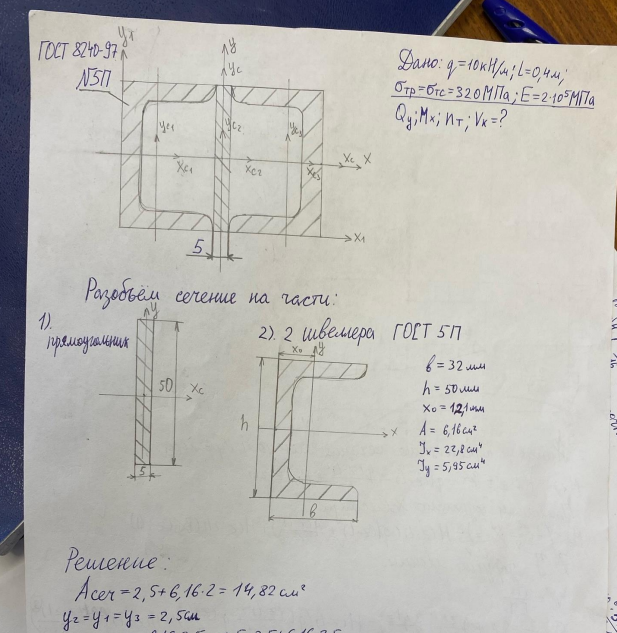 ГОСТ 8240-97
№5П
y1
y
yc
yc1
yc2
yc3
xc1
xc2
xc3
xc x
x1
5
Дано: q=10кН/м; L=0,4м;
σтр=σтс=320МПа; E=2·10⁵МПа
Qy; Mx; nт; Vк=?
Разобьём сечение на части:
1). прямоугольник
y
50
xc
5
2). 2 швеллера ГОСТ 5П
x0
y
h
x
в
в = 32 мм
h = 50 мм
x0 = 12,1 мм
A = 6,16 см²
Jx = 22,8 см⁴
Jy = 5,95 см⁴
Решение:
Aсеч = 2,5+6,16·2 = 14,82 см²
y2=y1=y3 = 2,5см